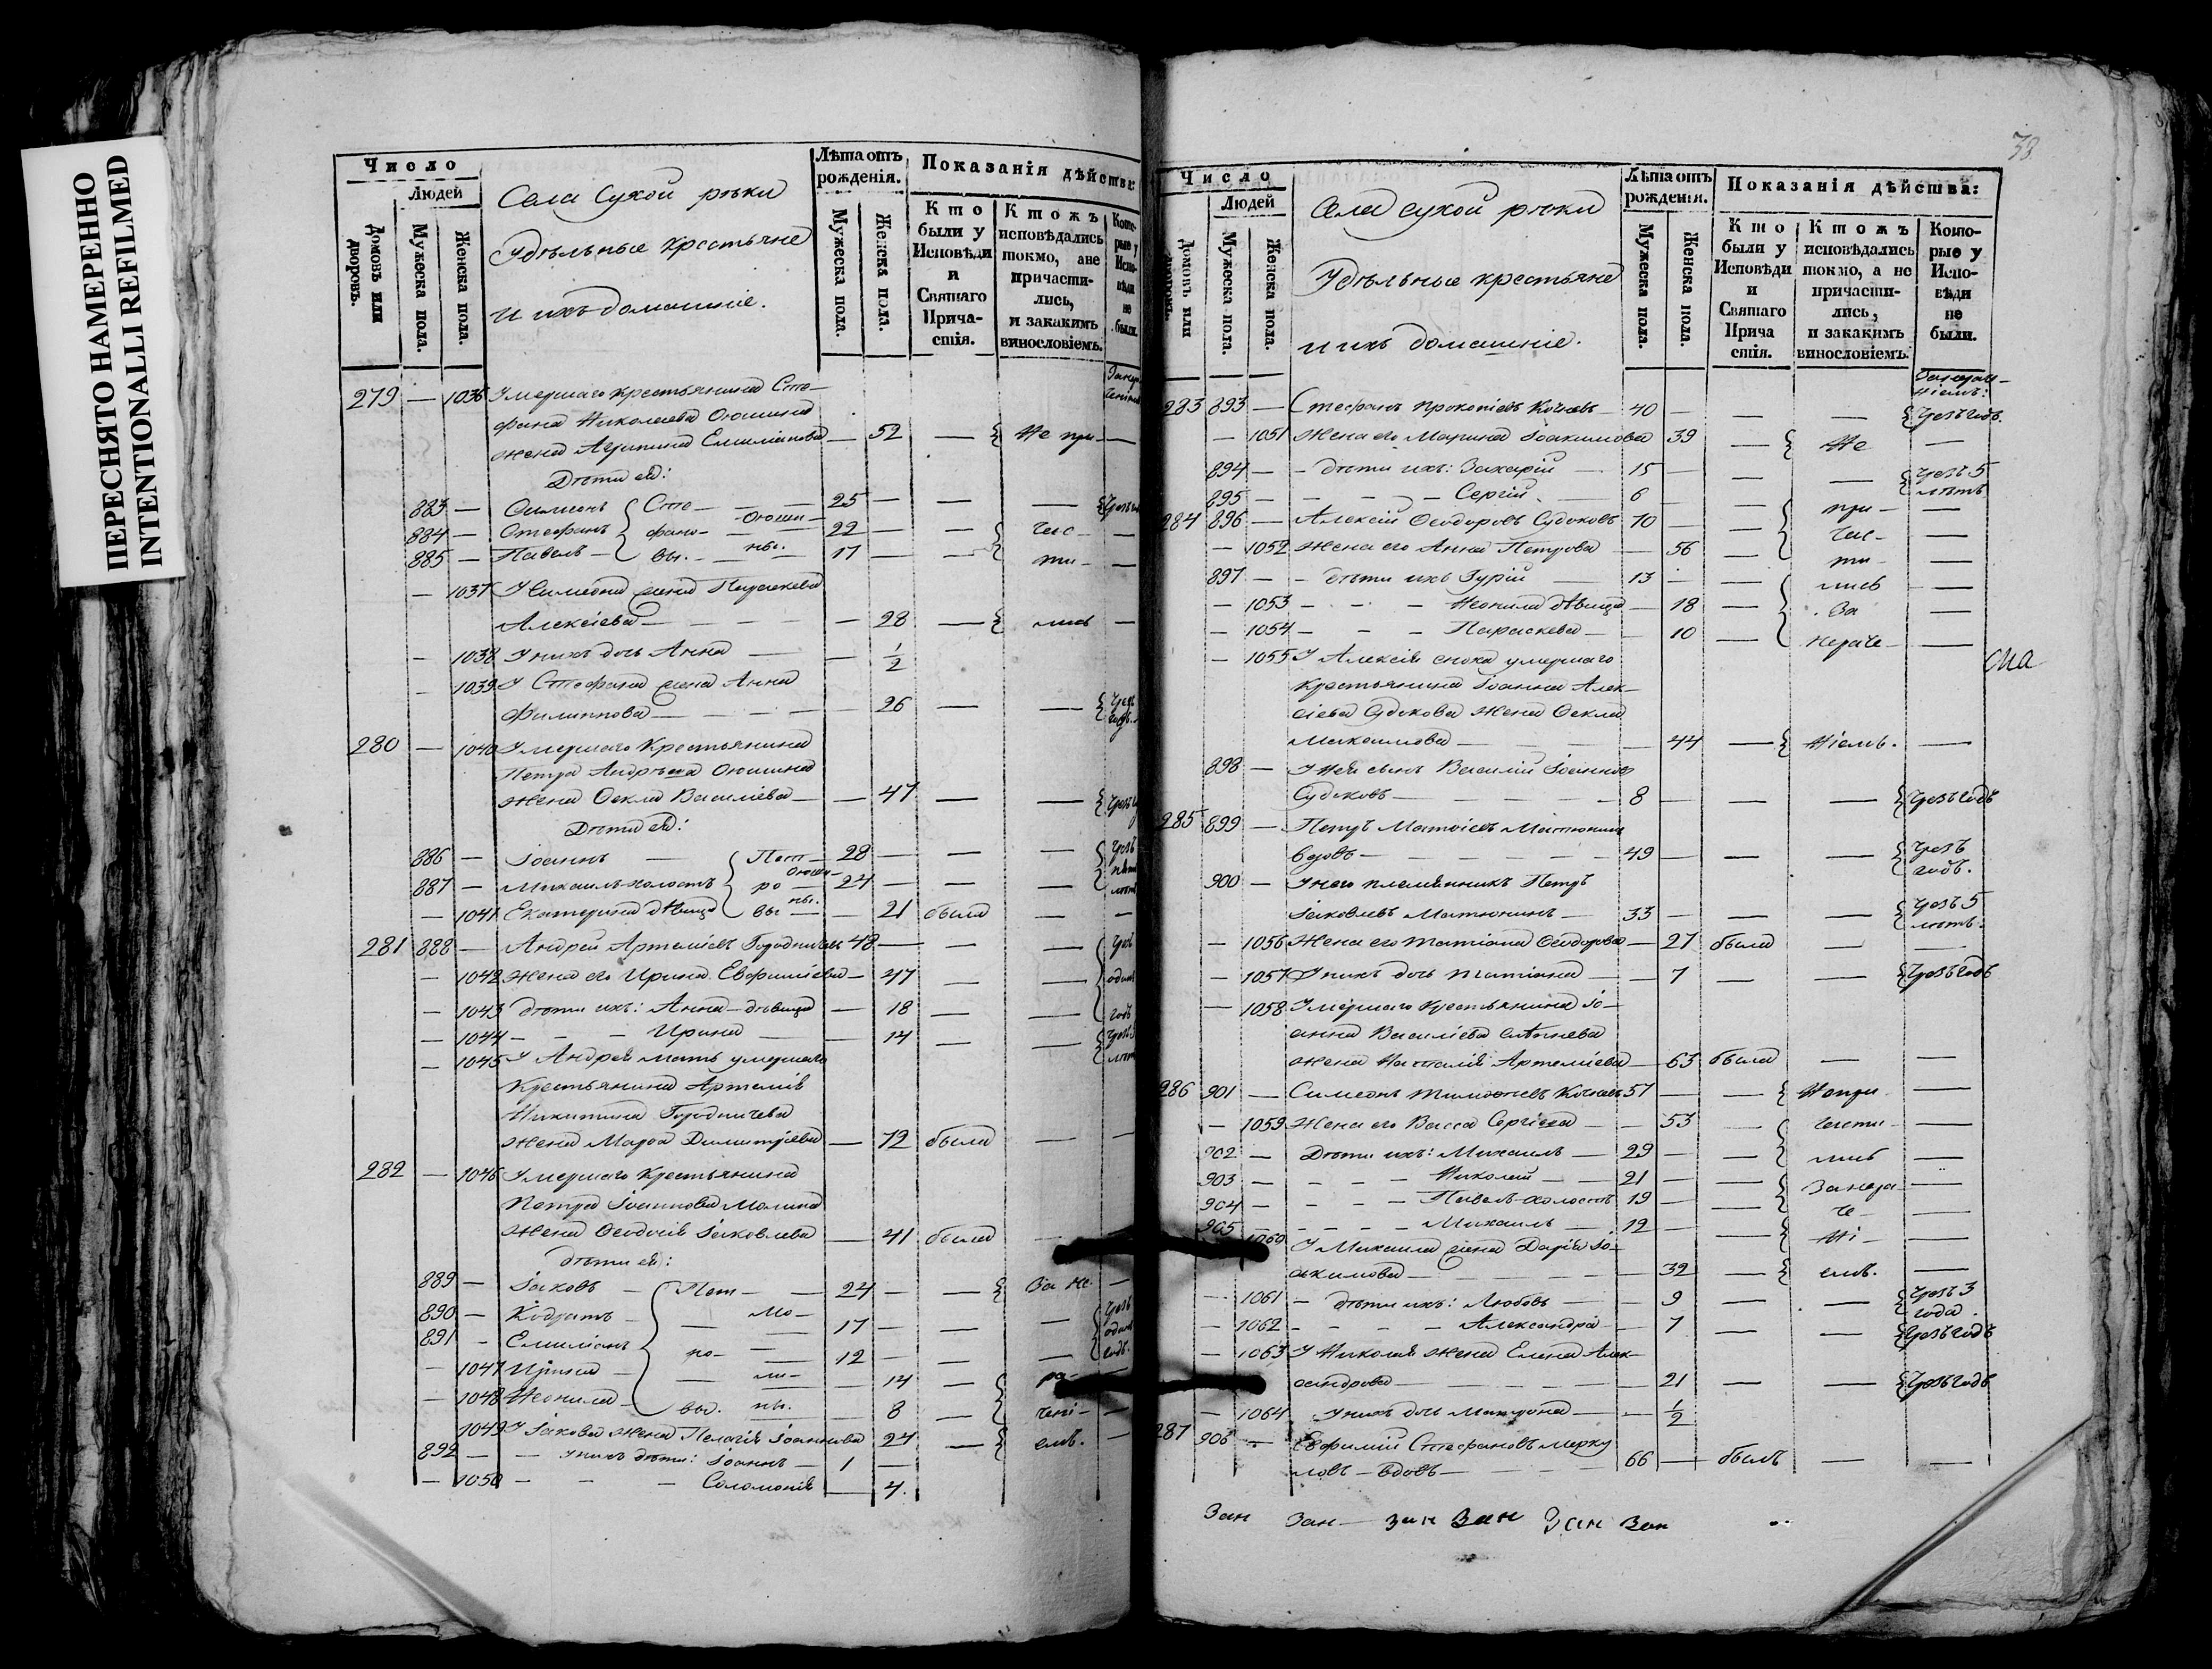 ПЕРЕСНЯТО НАМЕРЕННО
INTENTIONALLI REFILMED
Число
Людей
Домовъ или дворовъ.
Мужеска пола.
Женска пола.
Села Сухой рѣки
Удѣльные крестьяне
и ихъ домашніе.
Лѣта отъ рожденія.
Мужеска пола.
Женска пола.
Показанія дѣйства:
Кто были у Исповѣди и Святаго Прича-стія.
Ктожъ исповѣдались токмо, а не причасти-лись, и закакимъ винословіемъ.
Кото-рые у Испо-вѣди не были.
279 — 1036 Умершаго крестьянина Сте-
фана Николаева Оюшина
жена Агрипина Емиліанова — 52 — Не при- —
Дѣти ея:
883 — Симеонъ Сте- 25 — —
884 — Стефанъ фано- Оюши- 22 — — час- —
885 — Павелъ вы. ны. 17 — — ти- —
— 1037 У Симеона жена Параскева
Алексіева — 28 — лись —
— 1038 У нихъ дочь Анна — 1/2
— 1039 У Стефана жена Анна
Филиппова — 26 — — Чрезъ годъ.
280 — 1040 Умершаго крестьянина
Петра Андреева Оюшина
жена Ѳекла Василіева — 47 — —
Дѣти ея:
886 — Іоаннъ — Пет- 28 — — —
887 — Михаилъ холостъ ро- Оюши- 24 — — —
— 1041 Екатерина дѣвица вы ны. — 21 была — —
281 888 — Андрей Артеміевъ Городничевъ 48 — — —
— 1042 жена его Ирина Евфиміева — 47 — — одинъ
— 1043 дѣти ихъ: Анна — дѣвица — 18 — — годъ
— 1044 — — Ирина — 14 — —
— 1045 У Андрея мать умершаго
крестьянина Артемія
Никитина Городничева
жена Марѳа Димитріева — 72 была — —
282 — 1046 Умершаго крестьянина
Петра Іоаннова Молина
жена Ѳеодосія Іаковлева — 41 была —
дѣти ея:
889 — Іаковъ — Пет- 24 — — За не- —
890 — Кодратъ — Мо- 17 — — — Чрезъ
891 — Емиліанъ ро- 12 — — — одинъ годъ.
— 1047 Ирина — ли- — 14 — ра- —
— 1048 Неонила — вы. ны. — 8 — чені- —
1049 У Іакова жена Пелагія Іоаннова 24 — емъ. —
892 — — У нихъ дѣти: Іоаннъ — 1 —
— 1050 — — Соломонія — 4.
38
Число
Людей
Домовъ или дворовъ.
Мужеска пола.
Женска пола.
Села Сухой рѣки
Удѣльные крестьяне
и ихъ домашніе.
Лѣта отъ рожденія.
Мужеска пола.
Женска пола.
Показанія дѣйства:
Кто были у Исповѣди и Святаго Прича стія.
Ктожъ исповѣдались токмо, а не причасти-лись, и закакимъ винословіемъ.
Кото-рые у Испо-вѣди не были.
283 893 — Стефанъ Прокопіевъ Кочневъ — 40 — — — Чрезъ годъ.
— 1051 Жена его Марина Іоакимова 39 — Не —
894 — — дѣти ихъ: Захарій — 15 — — — Чрезъ 5
895 — — — Сергій — 6 лѣтъ
284 896 — Алексій Ѳеодоровъ Судоковъ 70 — — при- —
— 1052 Жена его Анна Петрова — 56 — час- —
897 — — дѣти ихъ Гурій — 13 — — ти- —
— 1053 — — Неонила дѣвица — 18 — лись —
— 1054 — — Параскева — 10 — За —
— 1055 У Алексія сноха умершаго нераче- —
крестьянина Іоанна Алек-
сіева Судокова жена Ѳекла
Максимова — 44 — Ніемъ. —
898 — У нея сынъ Василій Іоанновъ
Судоковъ — 8 — — — Чрезъ годъ
285 899 — Петръ Матѳіевъ Матюнинъ
вдовъ — 49 — — — Чрезъ годъ.
900 — У него племянникъ Петръ
Іаковлевъ Матюнинъ — 33 — — — Чрезъ 5 лѣтъ.
— 1056 Жена его Татіана Ѳеодорова — 27 была — —
— 1057 У нихъ дочь Татіана — 7 — — Чрезъ годъ
— 1058 Умершаго крестьянина Іо-
анна Василіева Слѣпнева
жена Наталія Артеміева — 63 была — —
286 901 — Симеонъ Тимоѳеевъ Кочневъ 57 — — Непри- —
— 1059 Жена его Васса Сергіева — 53 — части- —
902 — Дѣти ихъ: Михаилъ — 29 — — лись —
903 — — — Николай — 21 — — Занера- —
904 — — — Павелъ холостъ 19 — — че- —
905 — — — Михаилъ — 12 — — Ні- —
1060 У Михаила жена Дарія Іо-
акимова — 32 — емъ. —
— 1061 — дѣти ихъ: Любовь — 9 — — Чрезъ 3 года
— 1062 — — Александра — 7 — — Чрезъ годъ
— 1063 У Николая жена Елена Алек-
сандрова — 21 — — Чрезъ годъ
— 1064 У нихъ дочь Матрона — 1/2
287 906 — Евфимій Стефановъ Мерку
ловъ — вдовъ — 66 — былъ — —
Зан Зан зан Зан Зан Зан